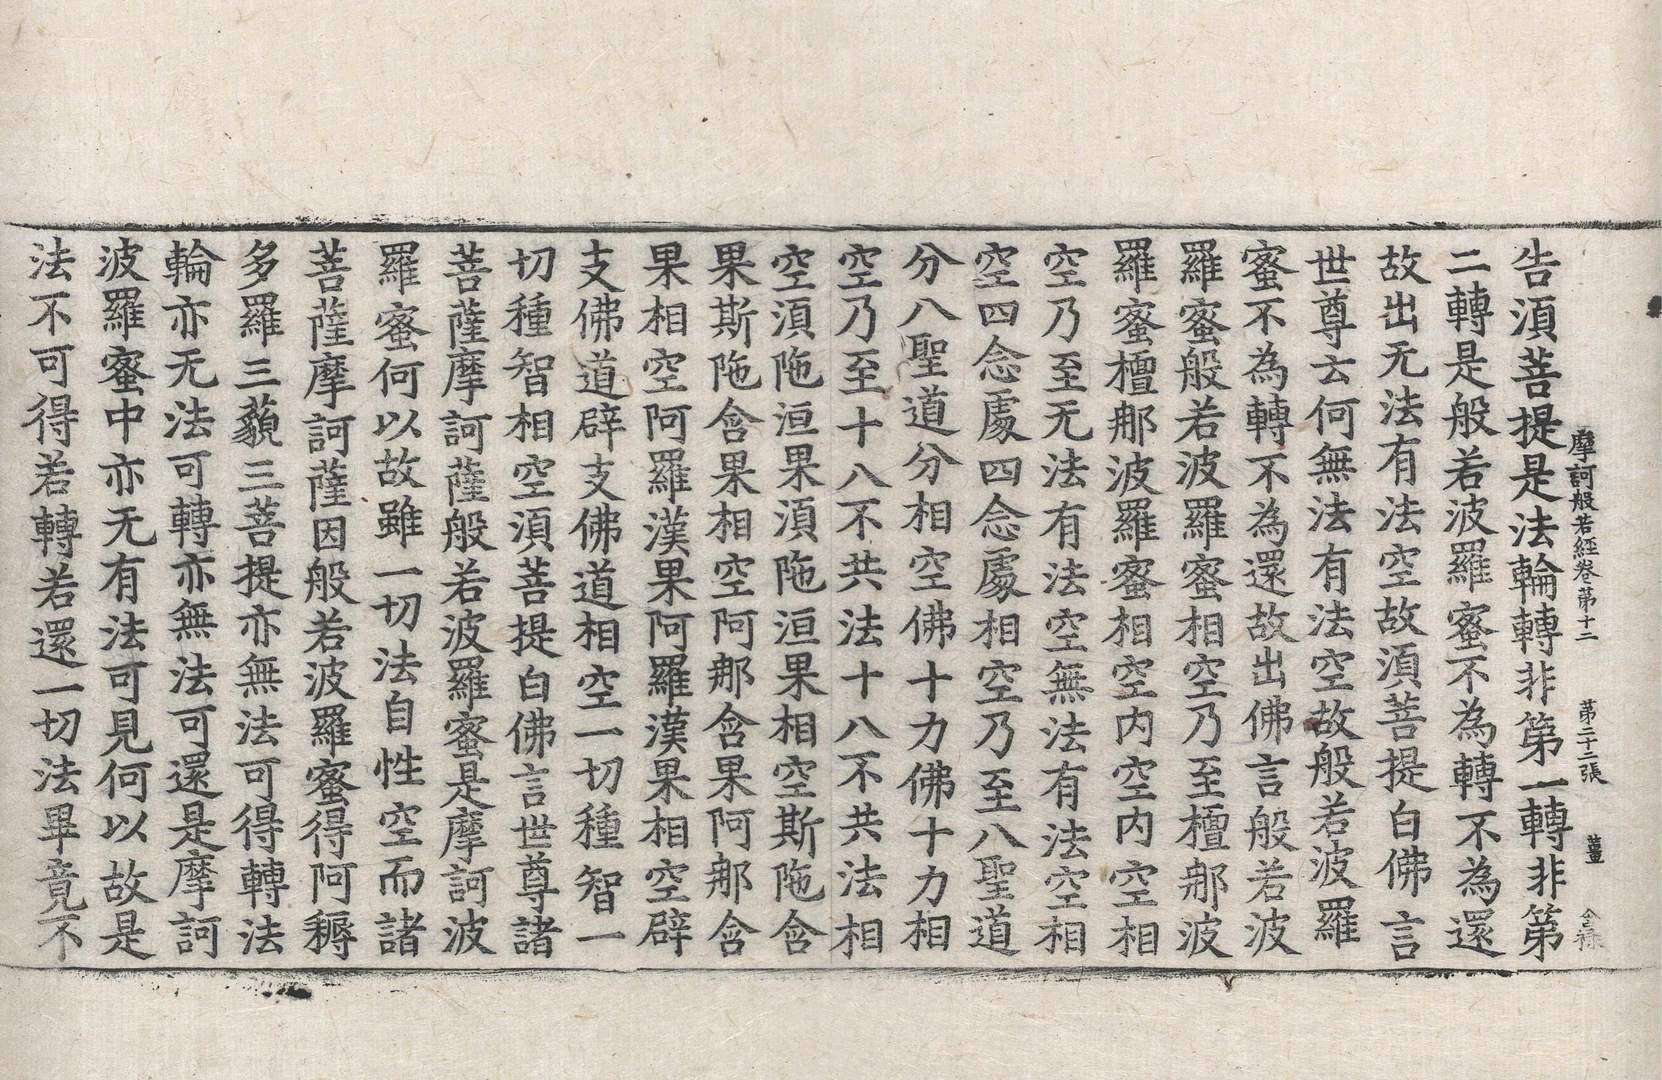 摩訶般若經卷第十二 第二十二張 薑
告湏菩提是法輪轉非第一轉非第
二轉是般若波羅蜜不為轉不為還
故出无法有法空故湏菩提白佛言
世尊云何無法有法空故般若波羅
蜜不為轉不為還故出佛言般若波
羅蜜般若波羅蜜相空乃至檀那波
羅蜜檀那波羅蜜相空内空内空相
空乃至无法有法空無法有法空相
空四念處四念處相空乃至八聖道
分八聖道分相空佛十力佛十力相
空乃至十八不共法十八不共法相
空湏陁洹果湏陁洹果相空斯陁含
果斯陁含果相空阿那含果阿那含
果相空阿羅漢果阿羅漢果相空辟
支佛道辟支佛道相空一切種智一
切種智相空湏菩提白佛言世尊諸
菩薩摩訶薩般若波羅蜜是摩訶波
羅蜜何以故雖一切法自性空而諸
菩薩摩訶薩因般若波羅蜜得阿耨
多羅三藐三菩提亦無法可得轉法
輪亦无法可轉亦無法可還是摩訶
波羅蜜中亦无有法可見何以故是
法不可得若轉若還一切法畢竟不